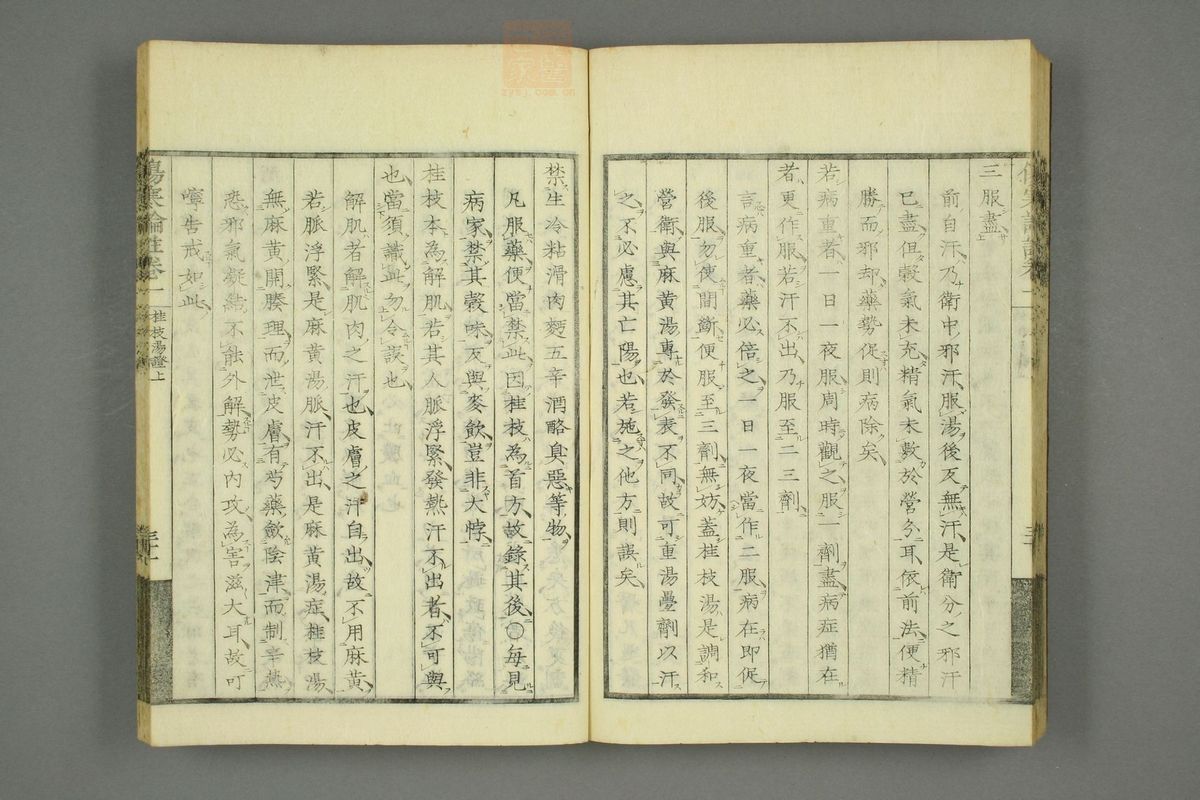 三服盡
前自汗乃衛中邪汗服湯後反無汗是衛分之邪汗
已盡但穀氣未充精氣未敷於營分耳依前法便精
勝而邪却藥勢促則病除矣
若病重者一日一夜服周時觀之服一劑盡病症猶在
者更作服若汗不出乃服至二三劑
言病重者藥必倍之一日一夜當作二服病在即促
後服勿使間斷便服至三劑無妨蓋桂枝湯是調和
營衛與麻黄湯專於發表不同故可重湯疊劑以汗
之不必慮其亡陽也若施之他方則誤矣
禁生冷粘滑肉麪五辛酒酪臭惡等物
凡服藥便當禁此因桂枝為首方故録其後〇毎見
病家禁其穀味反與麥飲豈非大悖
桂枝本為解肌若其人脈浮緊發熱汗不出者不可與
也當須識此勿令誤也
解肌者解肌肉之汗也皮膚之汗自出故不用麻黄
若脈浮緊是麻黄湯脈汗不出是麻黄湯症桂枝湯
無麻黄開腠理而泄皮膚有芍藥斂陰津而制辛熱
恐邪氣凝結不能外解勢必内攻為害滋大耳故叮
嚀告戒如此
傷寒論註卷一
桂枝湯證上